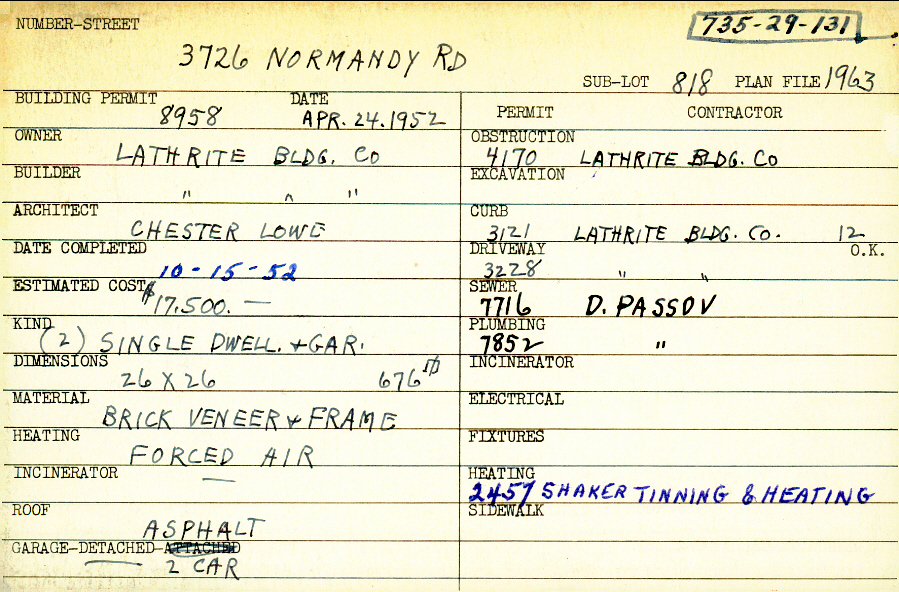 NUMBER-STREET
735-29-131
3726 NORMANDY RD
SUB-LOT 818 PLAN FILE 1963
BUILDING PERMIT DATE
8958 APR. 24. 1952
OWNER
LATHRITE BLDG. CO
BUILDER
" " "
ARCHITECT
CHESTER LOWE
DATE COMPLETED
10-15-52
ESTIMATED COST
$17.500. —
KIND
(2) SINGLE DWELL. + GAR.
DIMENSIONS
26 X 26 676
MATERIAL
BRICK VENEER + FRAME
HEATING
FORCED AIR
INCINERATOR
—
ROOF
ASPHALT
GARAGE-DETACHED-ATTACHED
2 CAR
PERMIT CONTRACTOR
OBSTRUCTION
4170 LATHRITE BLDG. CO
EXCAVATION
CURB
3121 LATHRITE BLDG. CO. 12
DRIVEWAY O.K.
3228 " "
SEWER
7716 D. PASSOV
PLUMBING
7852 "
INCINERATOR
ELECTRICAL
FIXTURES
HEATING
2457 SHAKER TINNING & HEATING
SIDEWALK